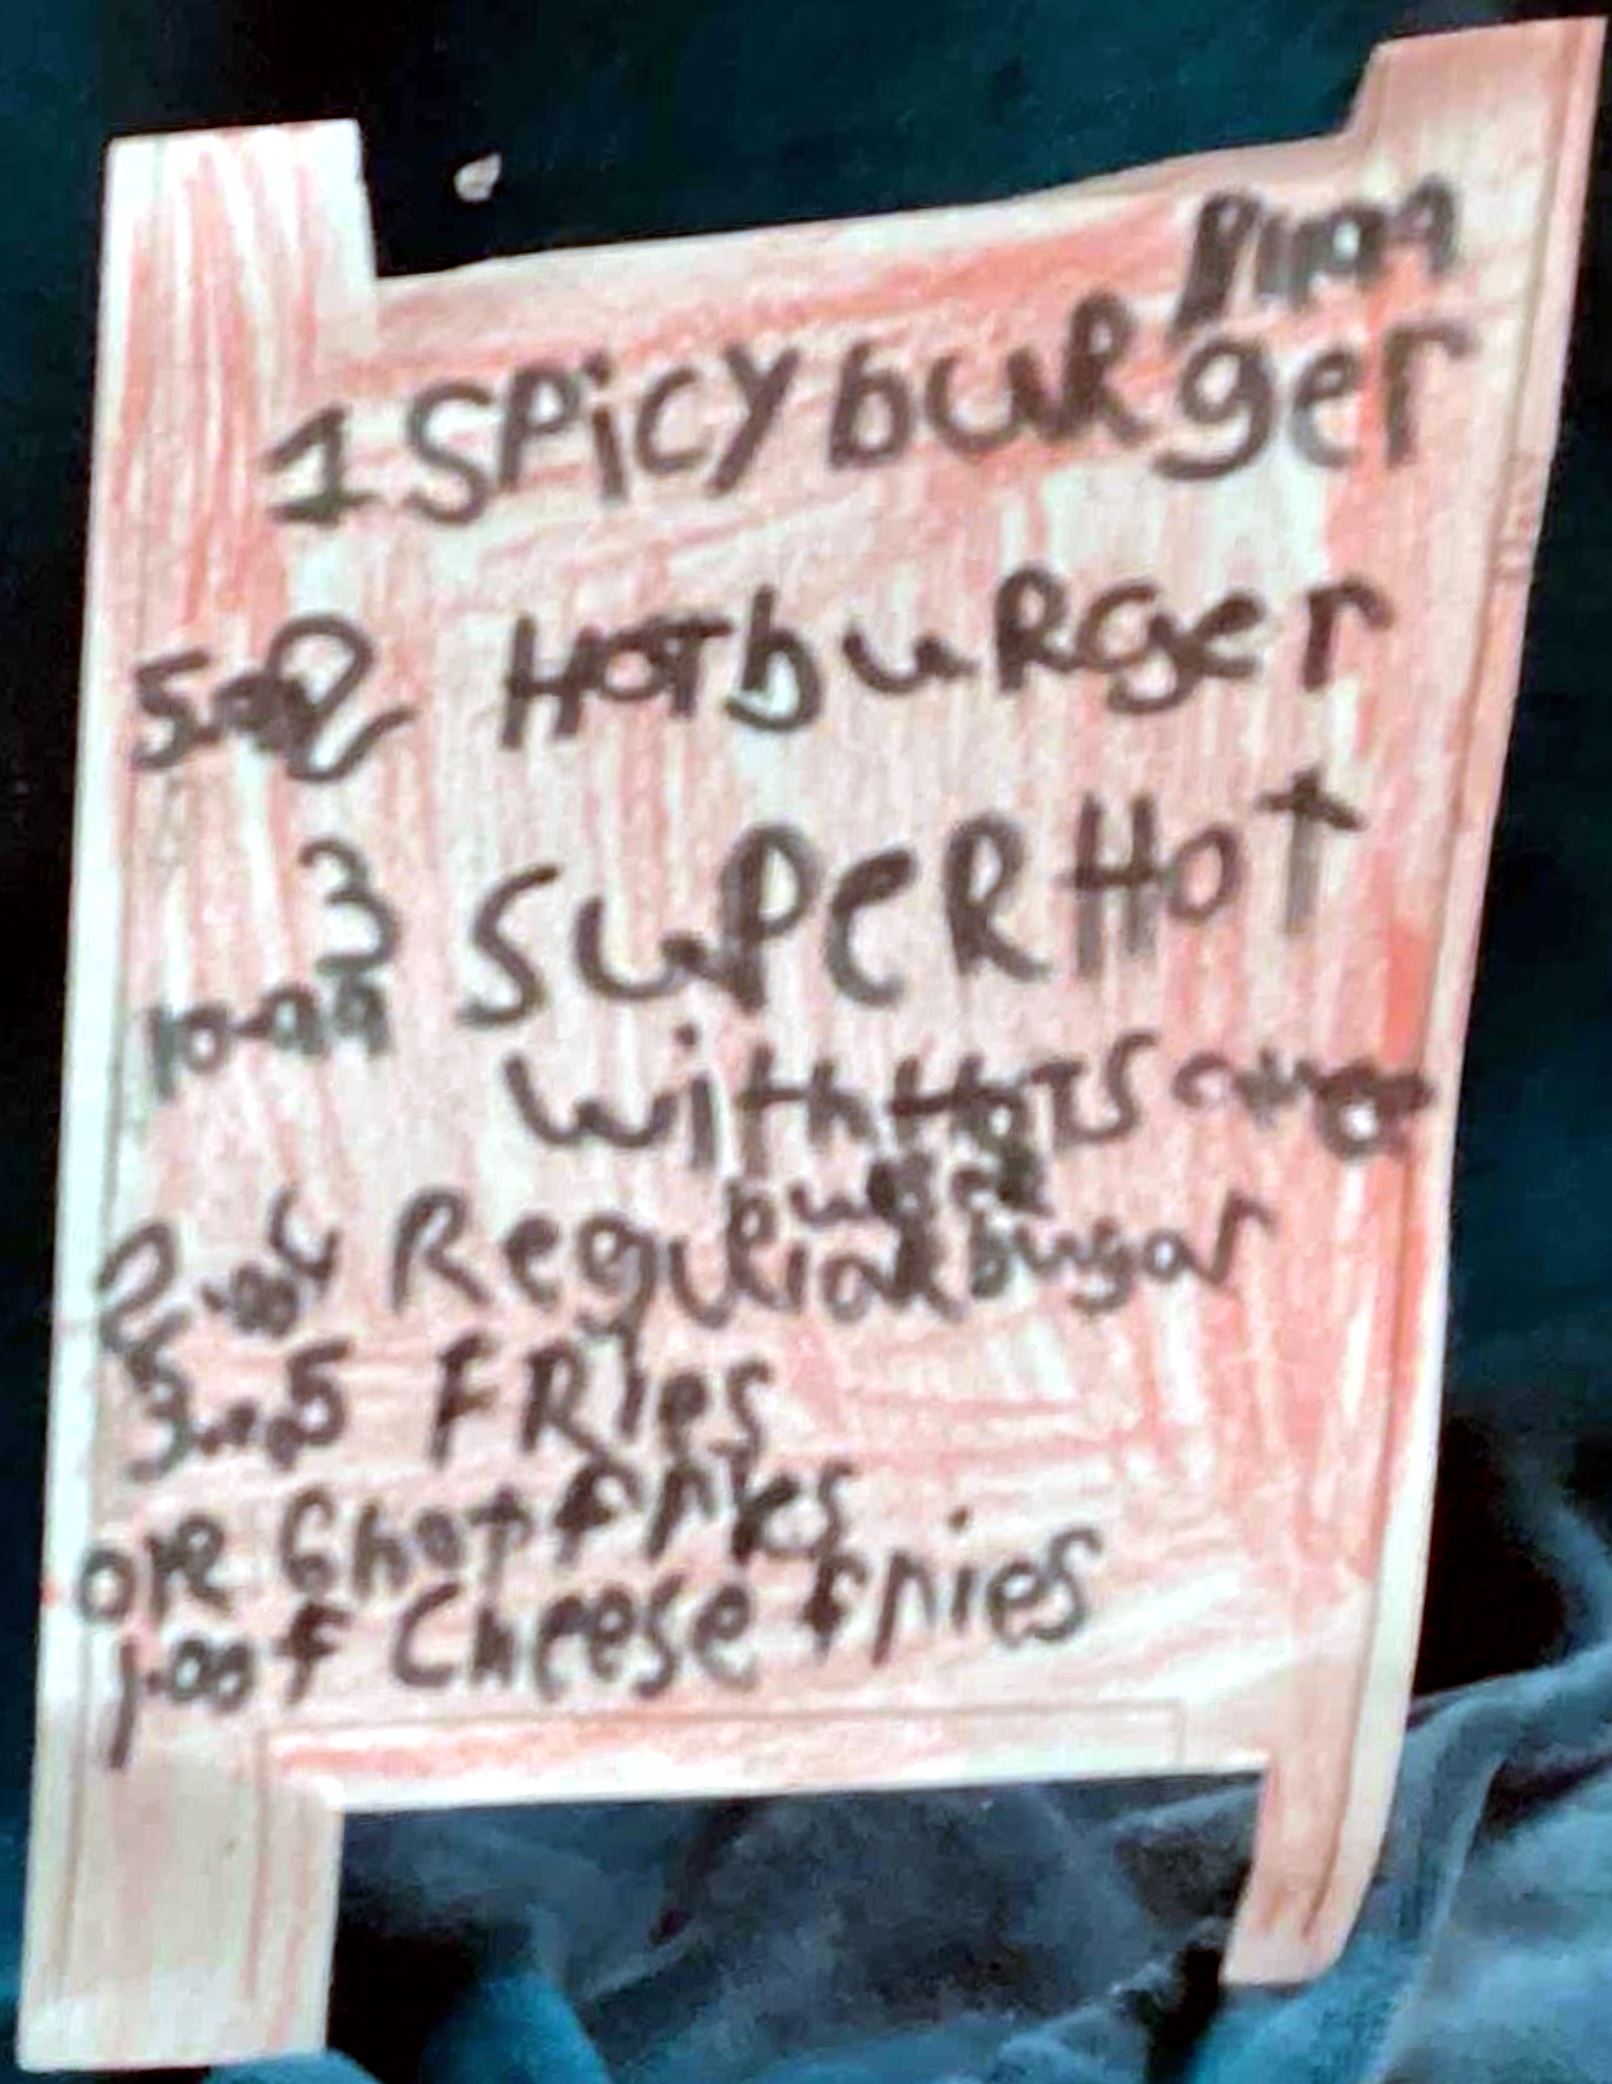 1 SPicy buRger
HOT buRger
3 SuPeR Hot
10.00
with HoT S
buRgeR
Regular bugar
FRies
OR hot fries
1.00 f Cheese fries